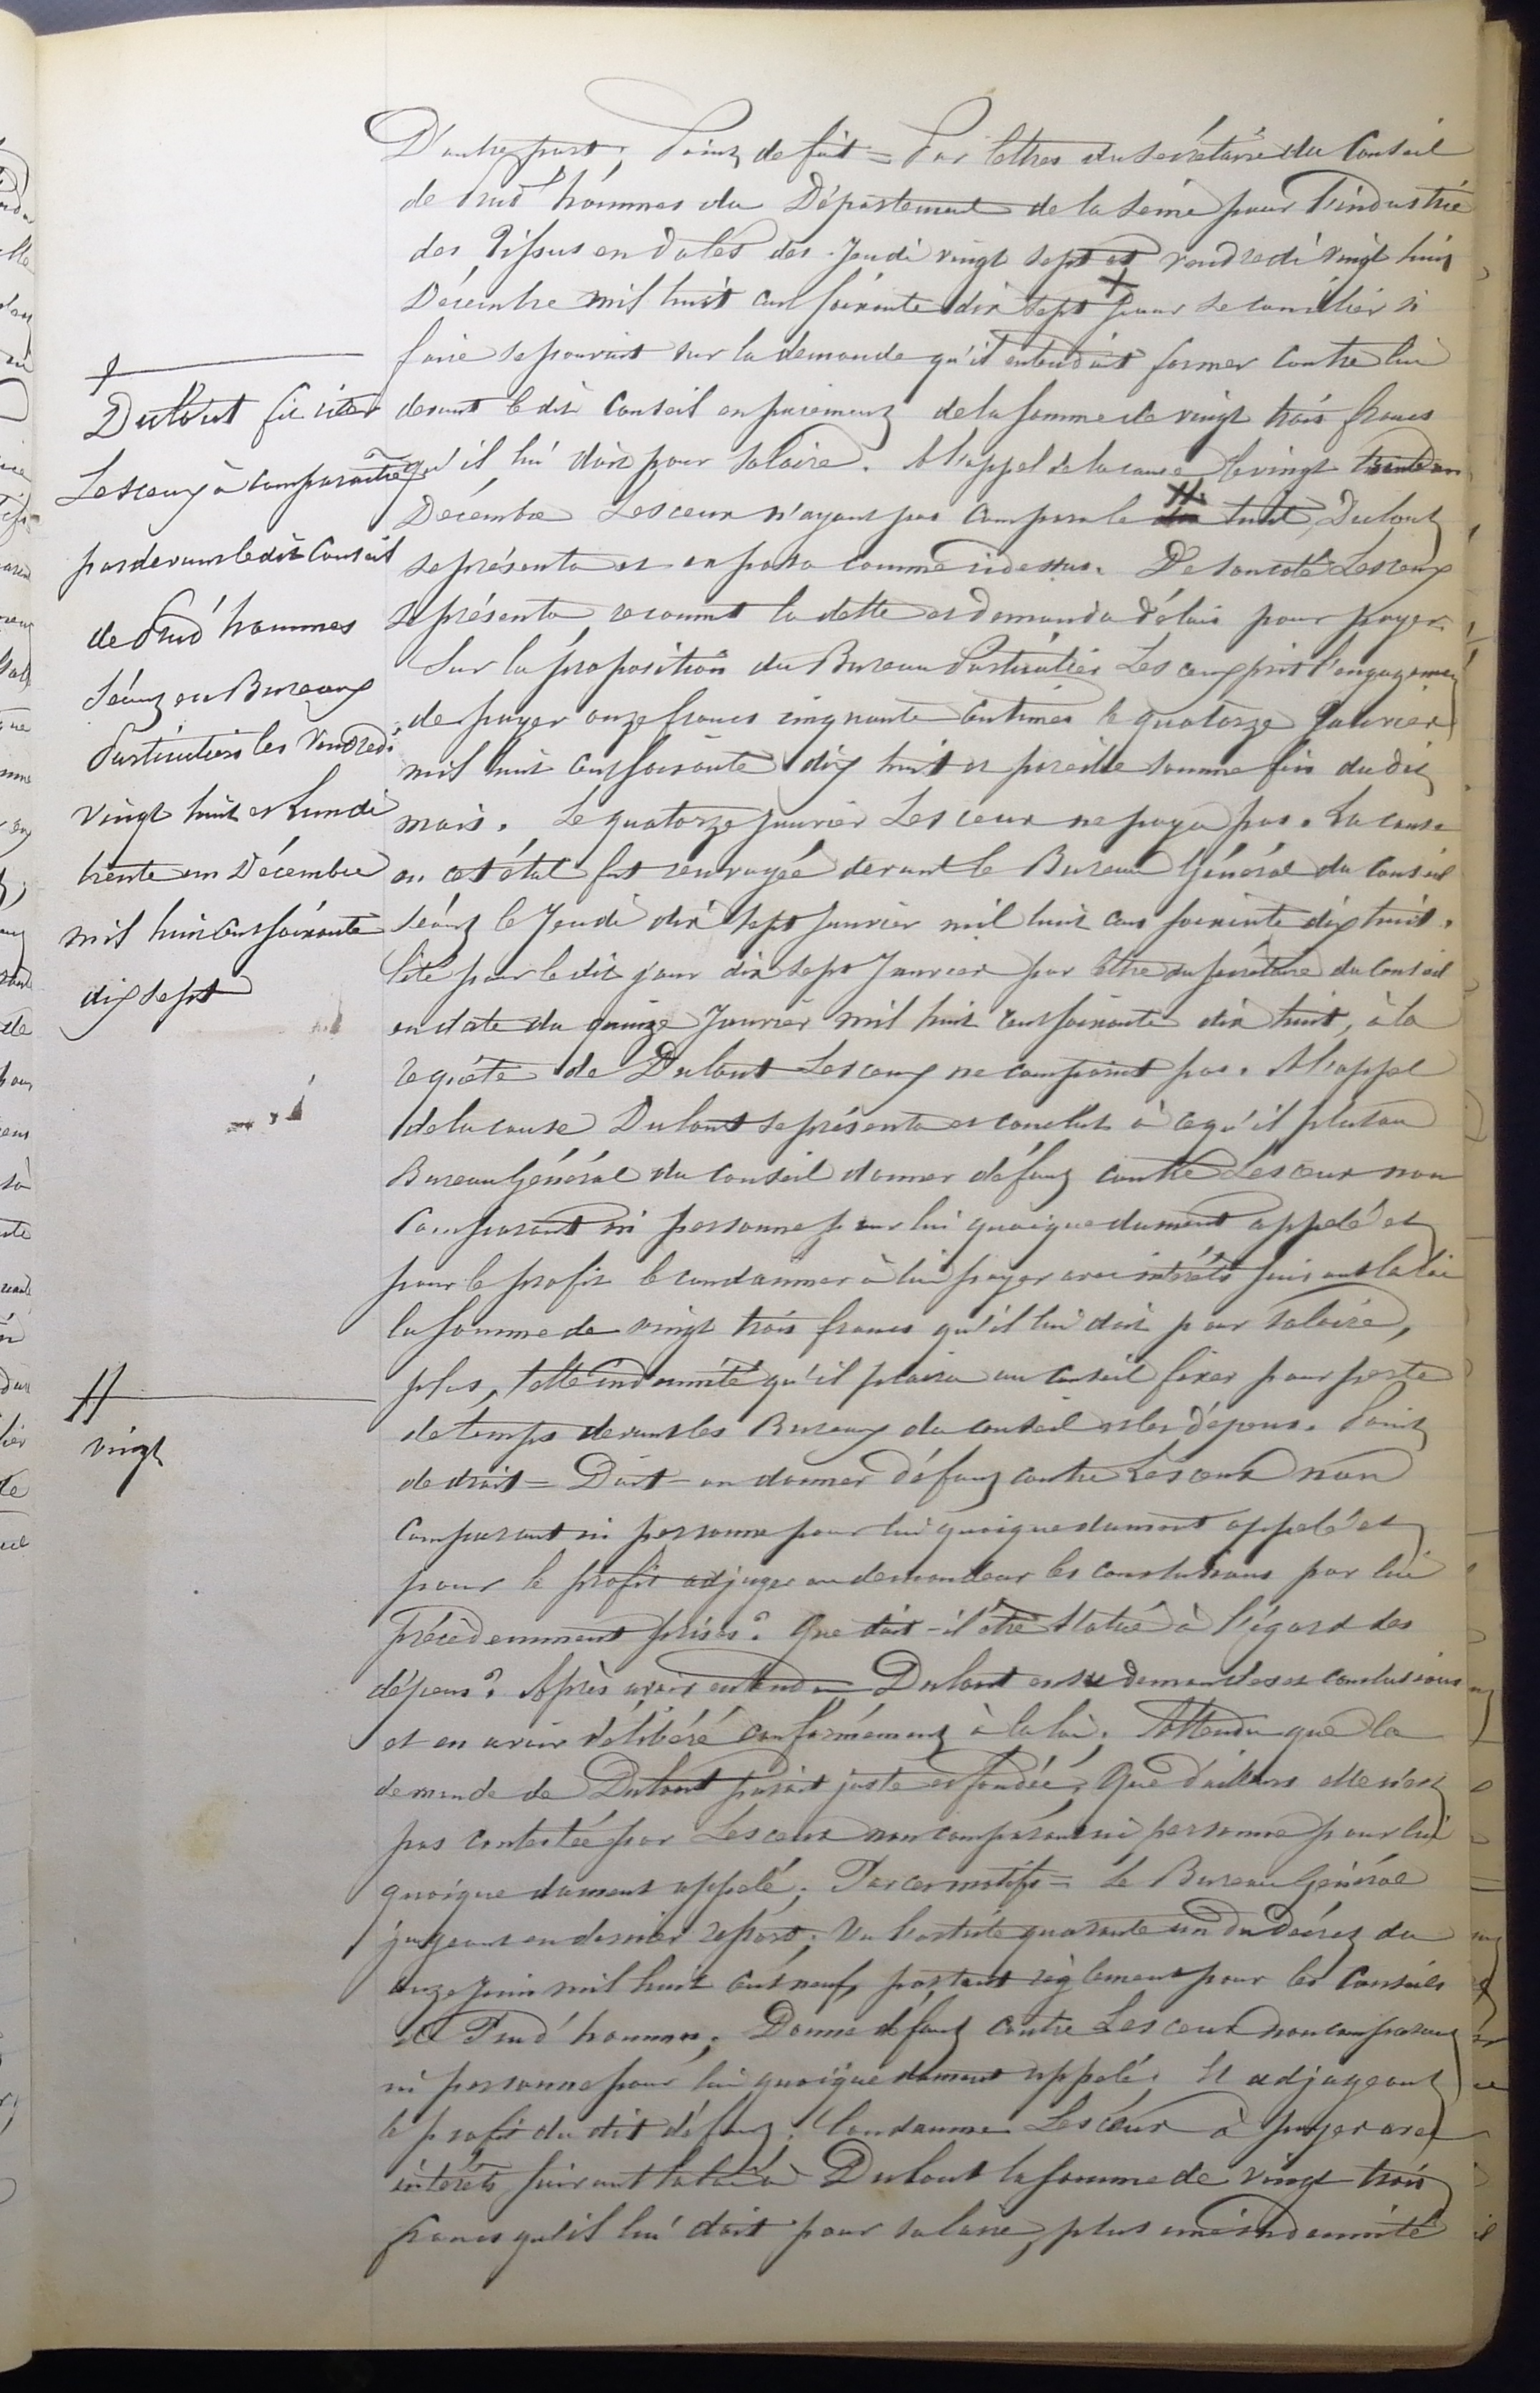 D'autre part; Point de fait = Par lettres du secrétaire du Conseil
de Prud'hommes du Département de la Seine pour l'industrie
des Tissus en dates des Jeudi vingt sept et vendredi vingt huit
Décembre mil huit cent soixante dix sept + pour se concilier si
faire se pouvait sur la demande qu'il entendait former contre lui
devant le dit Conseil en paiement de la somme de vingt trois francs
qu'il lui doit pour salaire. A l'appel de la cause le vingt trente un
Décembre Lesceux n'ayant pas comparu le dix # huit, Dulout
se présenta et exposa comme ci dessus. De son coté Lesceux
se présenta reconnut la dette et demanda délais pour payer.
Sur la proposition du Bureau Particulier Lesceux prit l'engagement
de payer onze francs cinquante centimes le quatorze Janvier
mil huit cent soixante dix huit et pareille somme fin du dit
mois. Le quatorze Janvier Lesceux ne paya pas. La cause
en cet état fut renvoyée devant le Bureau Général du Conseil
séant le Jeudi dix sept Janvier mil huit cent soixante dix huit.
Cité pour le dit jour dix sept Janvier par lettre du secrétaire du Conseil
en date du quinze Janvier mil huit cent soixante dix huit, à la
requête de Dulout Lesceux ne comparut pas. A l'appel
de la cause Dulout se présenta et conclut à ce qu'il plut au
Bureau Général du Conseil donner défaut contre Lesceux non
comparant ni personne pour lui quoique dument appelé et
pour le profit le condamner à lui payer avec intérêts suivant la loi
la somme de vingt trois francs qu'il lui doit pour salaire,
plus, telle indemnité qu'il plaira au Conseil fixer pour perte
de temps devant les Bureaux du Conseil et les dépens. Point
de droit = Doit-on donner défaut contre Lesceux non
comparant ni personne pour lui quoique dument appelé et
pour le profit adjuger au demandeur les conclusions par lui
précédemment prises? Que doit-il être statué à l'égard des
dépens? Après avoir entendu Dulout en sa demande et conclusions
et en avoir délibéré conformément à la loi; Attendu que la
demande de Dulout parait juste et fondée; Que d'ailleurs elle n'est
pas contestée par Lesceux non comparant ni personne pour lui
quoique dument appelé; Par ces motifs = Le Bureau Général
jugeant en dernier ressort; Vu l'article quarante un du décret du
onze juin mil huit cent neuf, portant règlement pour les Conseils
de Prud'hommes; Donne défaut contre Lesceux non comparant
ni personne pour lui quoique dument appelé; Et adjugeant
le profit du dit défaut; Condamne Lesceux à payer avec
intérêts suivant la loi à Dulout la somme de vingt trois
francs qu'il lui doit pour salaire, plus une indemnité
+
Dulout fit citer
Lesceux à comparaître
par devant le dit Conseil
de Prud'hommes
séant en Bureaux
Particuliers les Vendredi
vingt huit et Lundi
trente un Décembre
mil huit cent soixante
dix sept
#
vingt